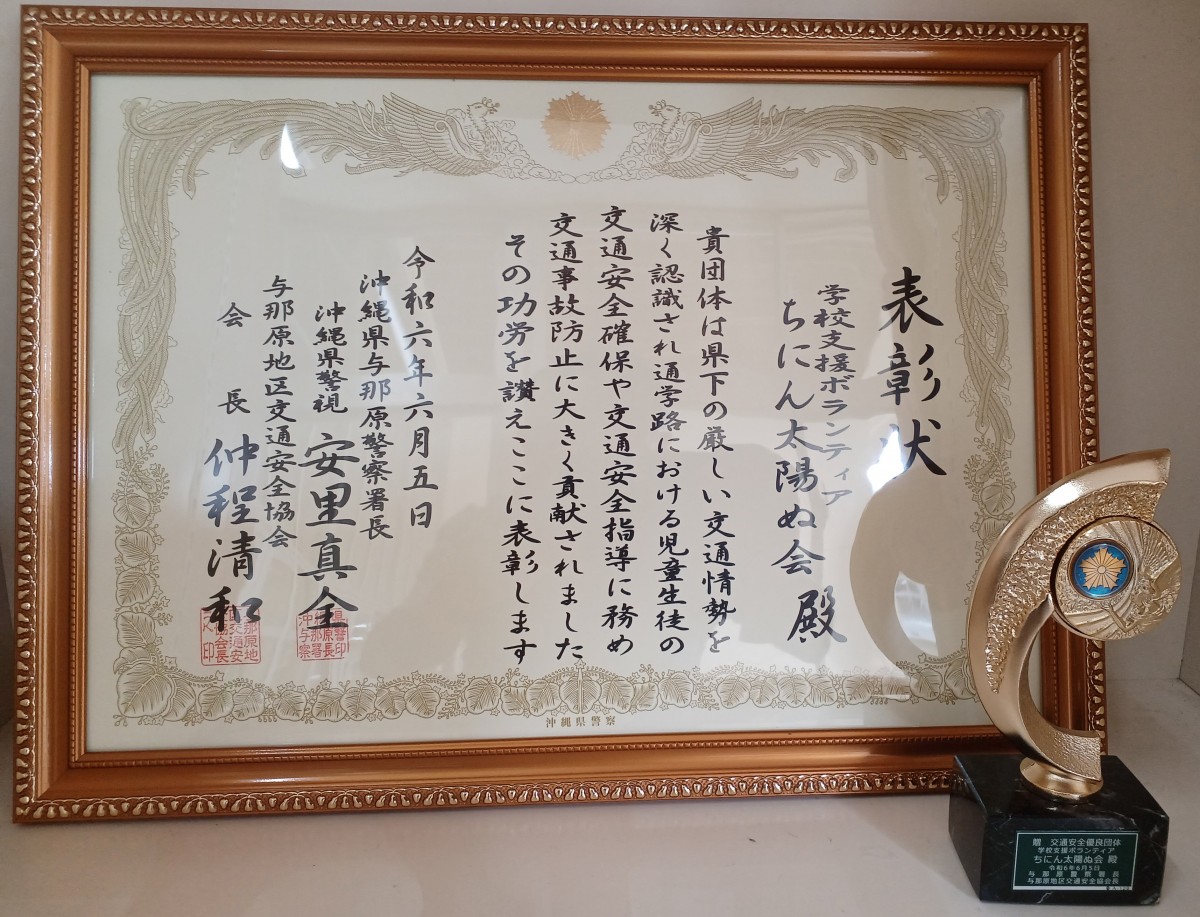 表彰状
学校支援ボランティア
ちにん太陽ぬ会 殿
貴団体は県下の厳しい交通情勢を
深く認識され通学路における児童生徒の
交通安全確保や交通安全指導に務め
交通事故防止に大きく貢献されました
その功労を讃えここに表彰します
令和六年六月五日
沖縄県与那原警察署長
沖縄県警視 安里真全
与那原地区交通安全協会
会長 仲程清和
沖縄県警察
贈 交通安全優良団体
学校支援ボランティア
ちにん太陽ぬ会 殿
令和6年6月5日
与那原警察署長
与那原地区交通安全協会長